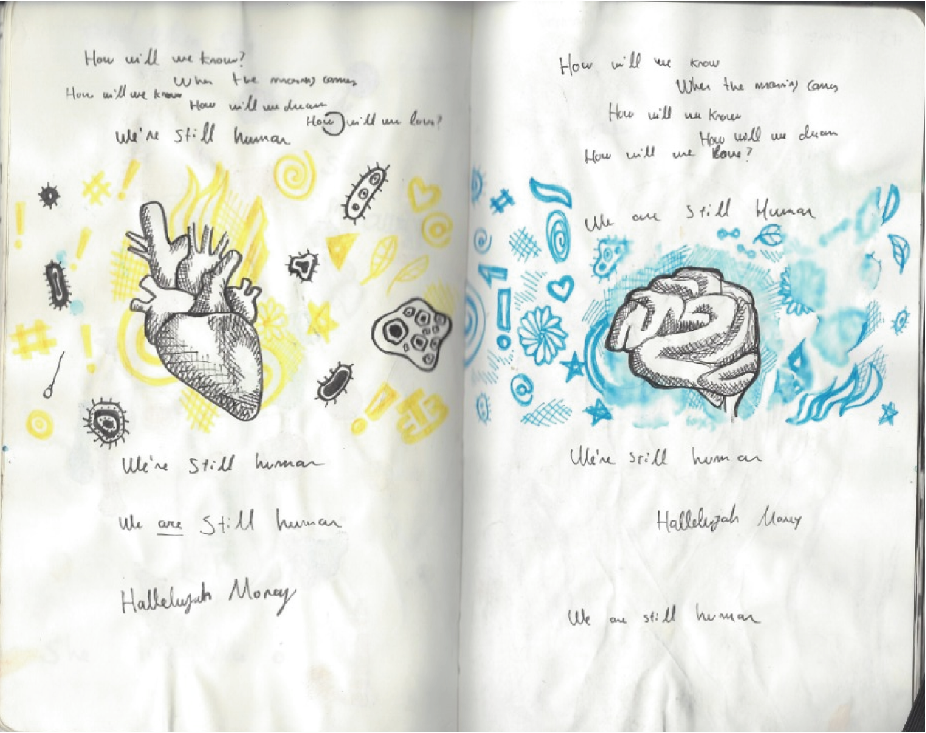 How will we know?
When the morning comes
How will we know
How will we dream
How will we love?
We're still human
We're still human
We are still human
Hallelujah Money
How will we know
When the morning comes
How will we know
How will we dream
How will we love?
We are still Human
We're still human
Hallelujah Money
We are still human